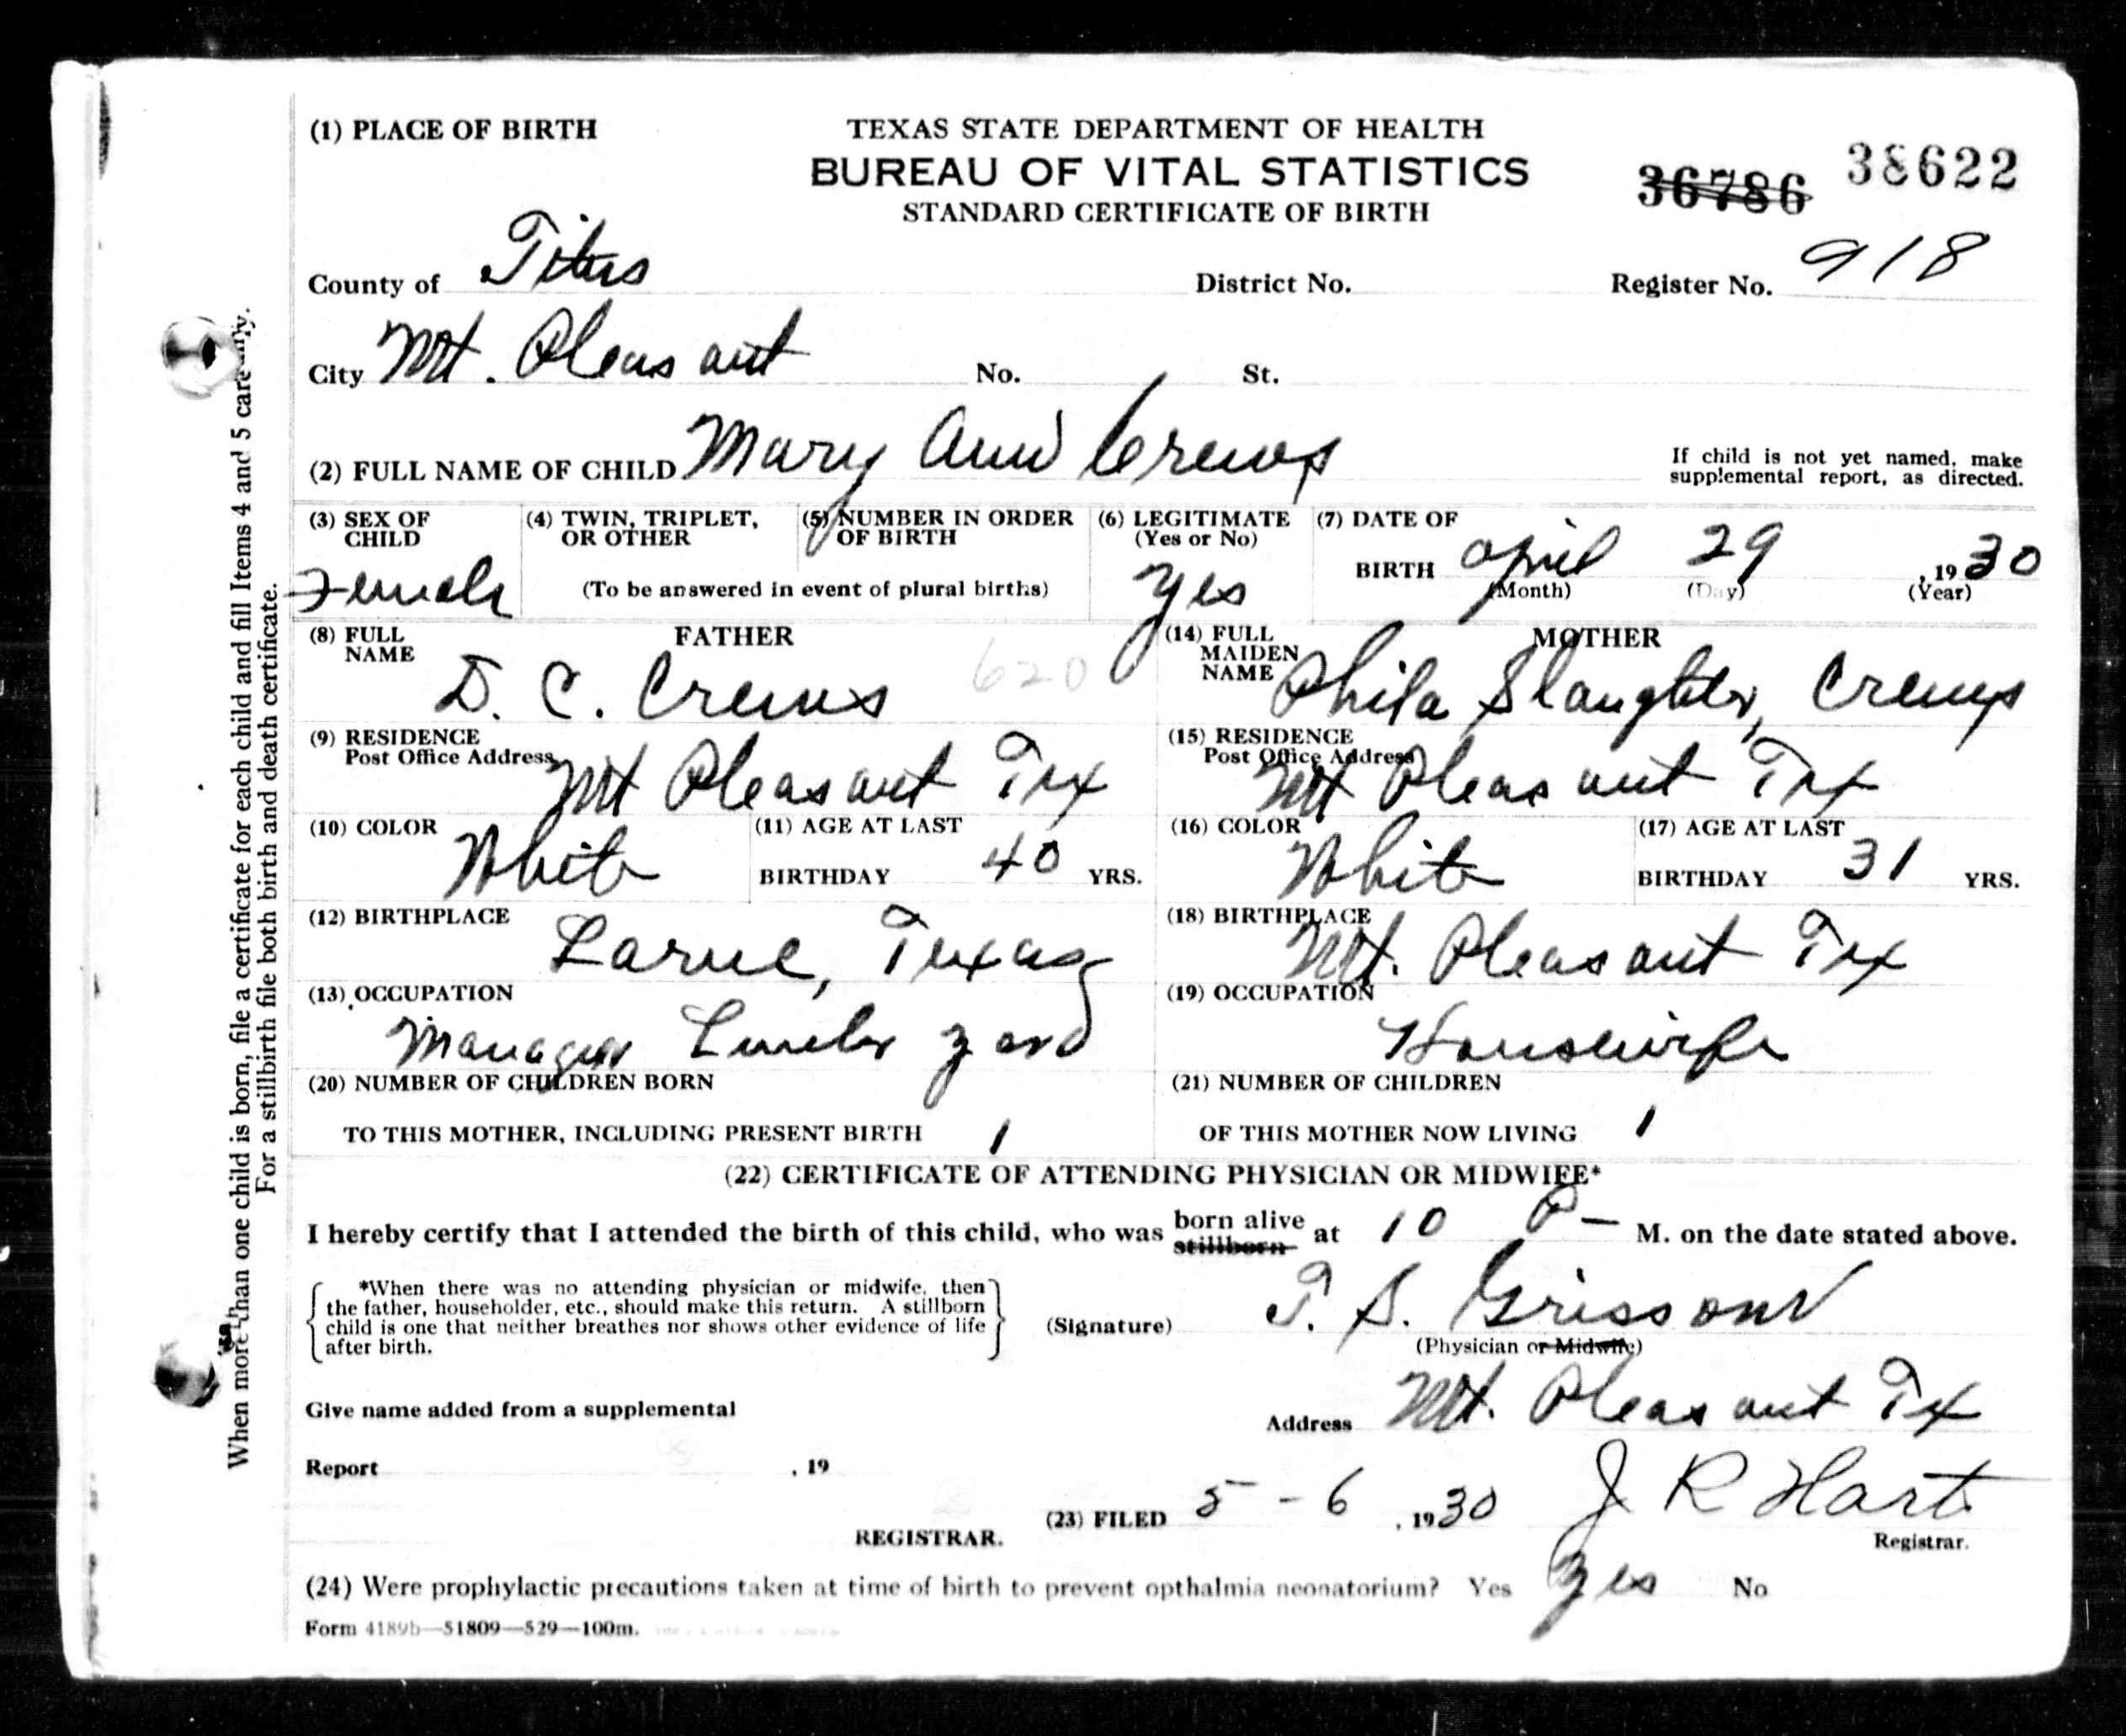 (1) PLACE OF BIRTH
TEXAS STATE DEPARTMENT OF HEALTH
BUREAU OF VITAL STATISTICS
STANDARD CERTIFICATE OF BIRTH
36786 38622
County of Titus District No. Register No. 918
City Mt. Pleasant No. St.
(2) FULL NAME OF CHILD Mary Ann Crews
If child is not yet named, make
supplemental report, as directed.
(3) SEX OF CHILD Female
(4) TWIN, TRIPLET, OR OTHER
(5) NUMBER IN ORDER OF BIRTH
(To be answered in event of plural births)
(6) LEGITIMATE (Yes or No) Yes
(7) DATE OF BIRTH April 29, 1930
(Month) (Day) (Year)
FATHER
(8) FULL NAME D. C. Crews
620
MOTHER
(14) FULL MAIDEN NAME Phila Slaughter, Crews
(9) RESIDENCE
Post Office Address Mt Pleasant Tex
(15) RESIDENCE
Post Office Address Mt Pleasant Tex
(10) COLOR White
(11) AGE AT LAST BIRTHDAY 40 YRS.
(16) COLOR White
(17) AGE AT LAST BIRTHDAY 31 YRS.
(12) BIRTHPLACE Larue, Texas
(18) BIRTHPLACE Mt. Pleasant Tex
(13) OCCUPATION Manager Lumber yard
(19) OCCUPATION Housewife
(20) NUMBER OF CHILDREN BORN
TO THIS MOTHER, INCLUDING PRESENT BIRTH 1
(21) NUMBER OF CHILDREN
OF THIS MOTHER NOW LIVING 1
(22) CERTIFICATE OF ATTENDING PHYSICIAN OR MIDWIFE*
I hereby certify that I attended the birth of this child, who was born alive stillborn at 10 P - M. on the date stated above.
*When there was no attending physician or midwife, then
the father, householder, etc., should make this return. A stillborn
child is one that neither breathes nor shows other evidence of life
after birth.
(Signature) T. S. Grissom
(Physician or Midwife)
Give name added from a supplemental
Address Mt. Pleasant Tex
Report , 19
REGISTRAR.
(23) FILED 5 - 6, 1930 J R Hart
Registrar.
(24) Were prophylactic precautions taken at time of birth to prevent opthalmia neonatorium? Yes Yes No
Form 4189b—51809—529—100m.
When more than one child is born, file a certificate for each child and fill Items 4 and 5 carefully.
For a stillbirth file both birth and death certificate.